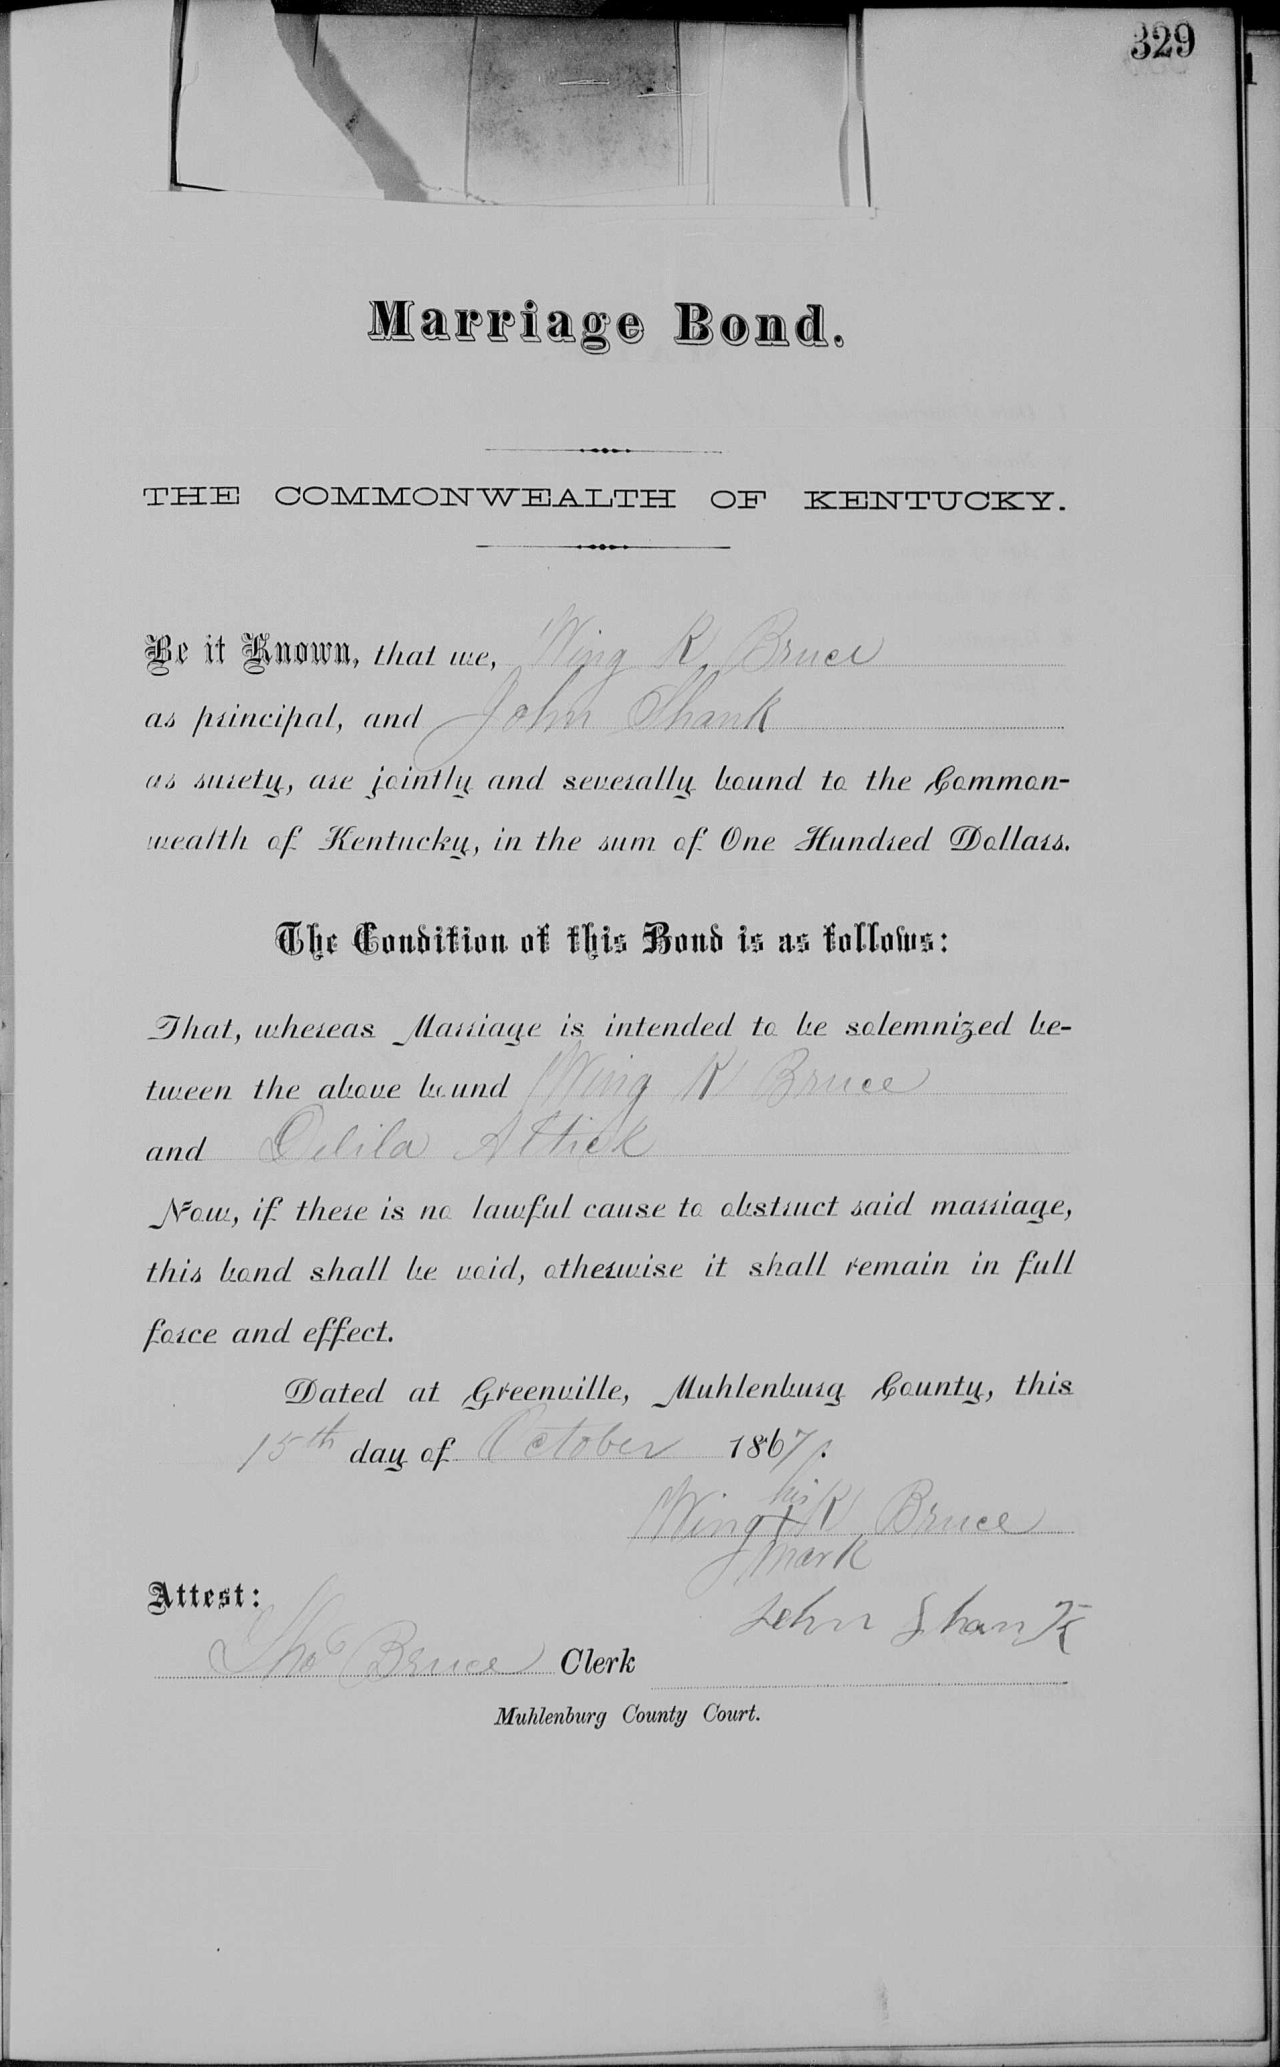 329
Marriage Bond.
THE COMMONWEALTH OF KENTUCKY.
Be it Known, that we, Wing R Bruce
as principal, and John Shank
as surety, are jointly and severally bound to the Common-
wealth of Kentucky, in the sum of One Hundred Dollars.
The Condition of this Bond is as follows:
That, whereas Marriage is intended to be solemnized be-
tween the above bound Wing R Bruce
and Delila Attick
Now, if there is no lawful cause to obstruct said marriage,
this bond shall be void, otherwise it shall remain in full
force and effect.
Dated at Greenville, Muhlenburg County, this
15th day of October 1867.
his
Wing X R Bruce
mark
Attest:
John Shank
Thos Bruce Clerk
Muhlenburg County Court.